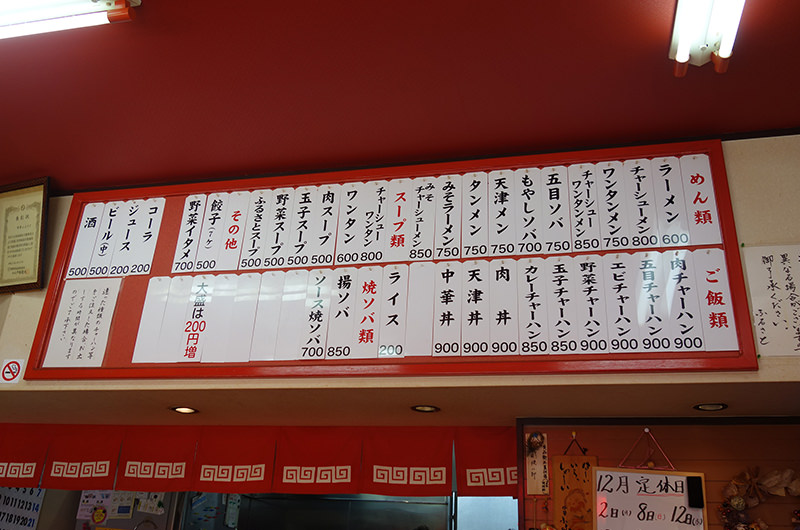 めん類
ラーメン 600
チャーシューメン 800
ワンタンメン 750
チャーシューワンタンメン 850
五目ソバ 750
もやしソバ 700
天津メン 750
タンメン 750
みそラーメン 750
みそチャーシューメン 850
スープ類
チャーシューワンタン 800
ワンタン 600
肉スープ 500
玉子スープ 500
野菜スープ 500
ふるさとスープ 500
その他
餃子(六ヶ) 500
野菜イタメ 700
コーラ 200
ジュース 200
ビール(中) 500
酒 500
ご飯類
肉チャーハン 900
五目チャーハン 900
エビチャーハン 900
野菜チャーハン 850
玉子チャーハン 850
カレーチャーハン 850
肉丼 900
天津丼 900
中華丼 900
ライス 200
焼ソバ類
揚ソバ 850
ソース焼ソバ 700
大盛は200円増
違った種類のラーメン等
をご注文した場合、お出
しする時間が異なります
のでご了承下さい。
異なる場合が
御了承ください
ふるさと
12月定休日
2日(火) 8日(月) 12日(金)